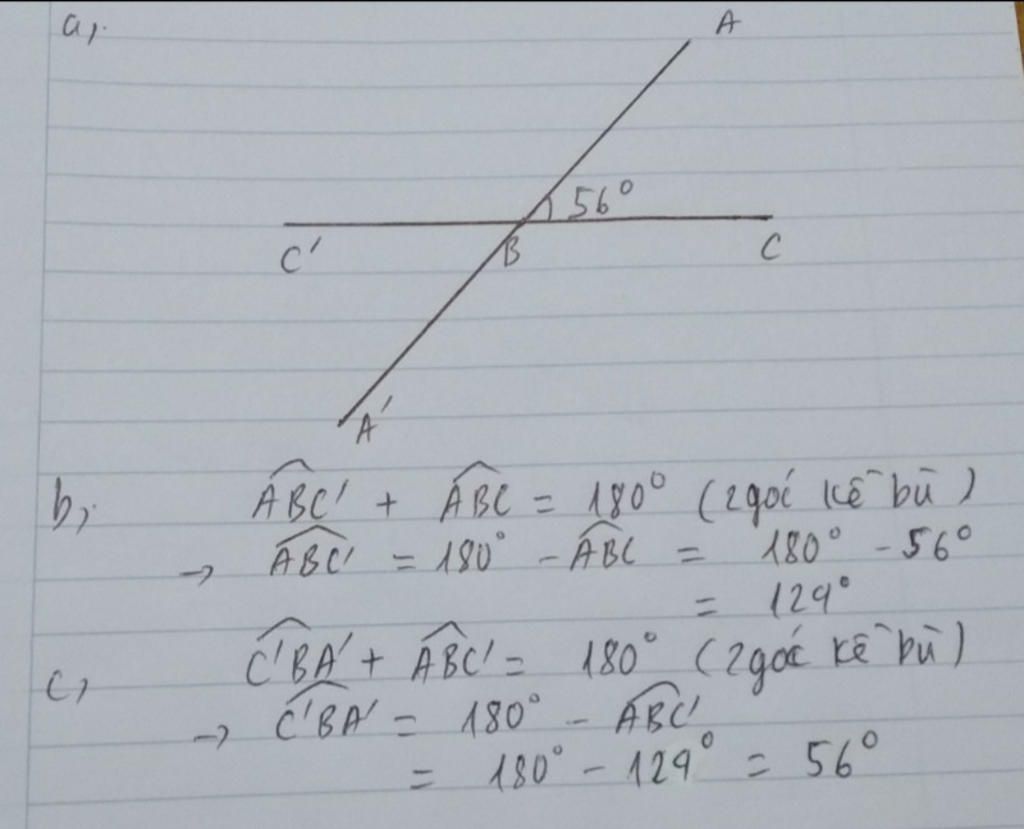 a,
A
56°
C'
B
C
A'
b, ABC' + ABC = 180° (2 góc kề bù)
→ ABC' = 180° - ABC = 180° - 56°
= 124°
c, C'BA' + ABC' = 180° (2 góc kề bù)
→ C'BA' = 180° - ABC'
= 180° - 124° = 56°